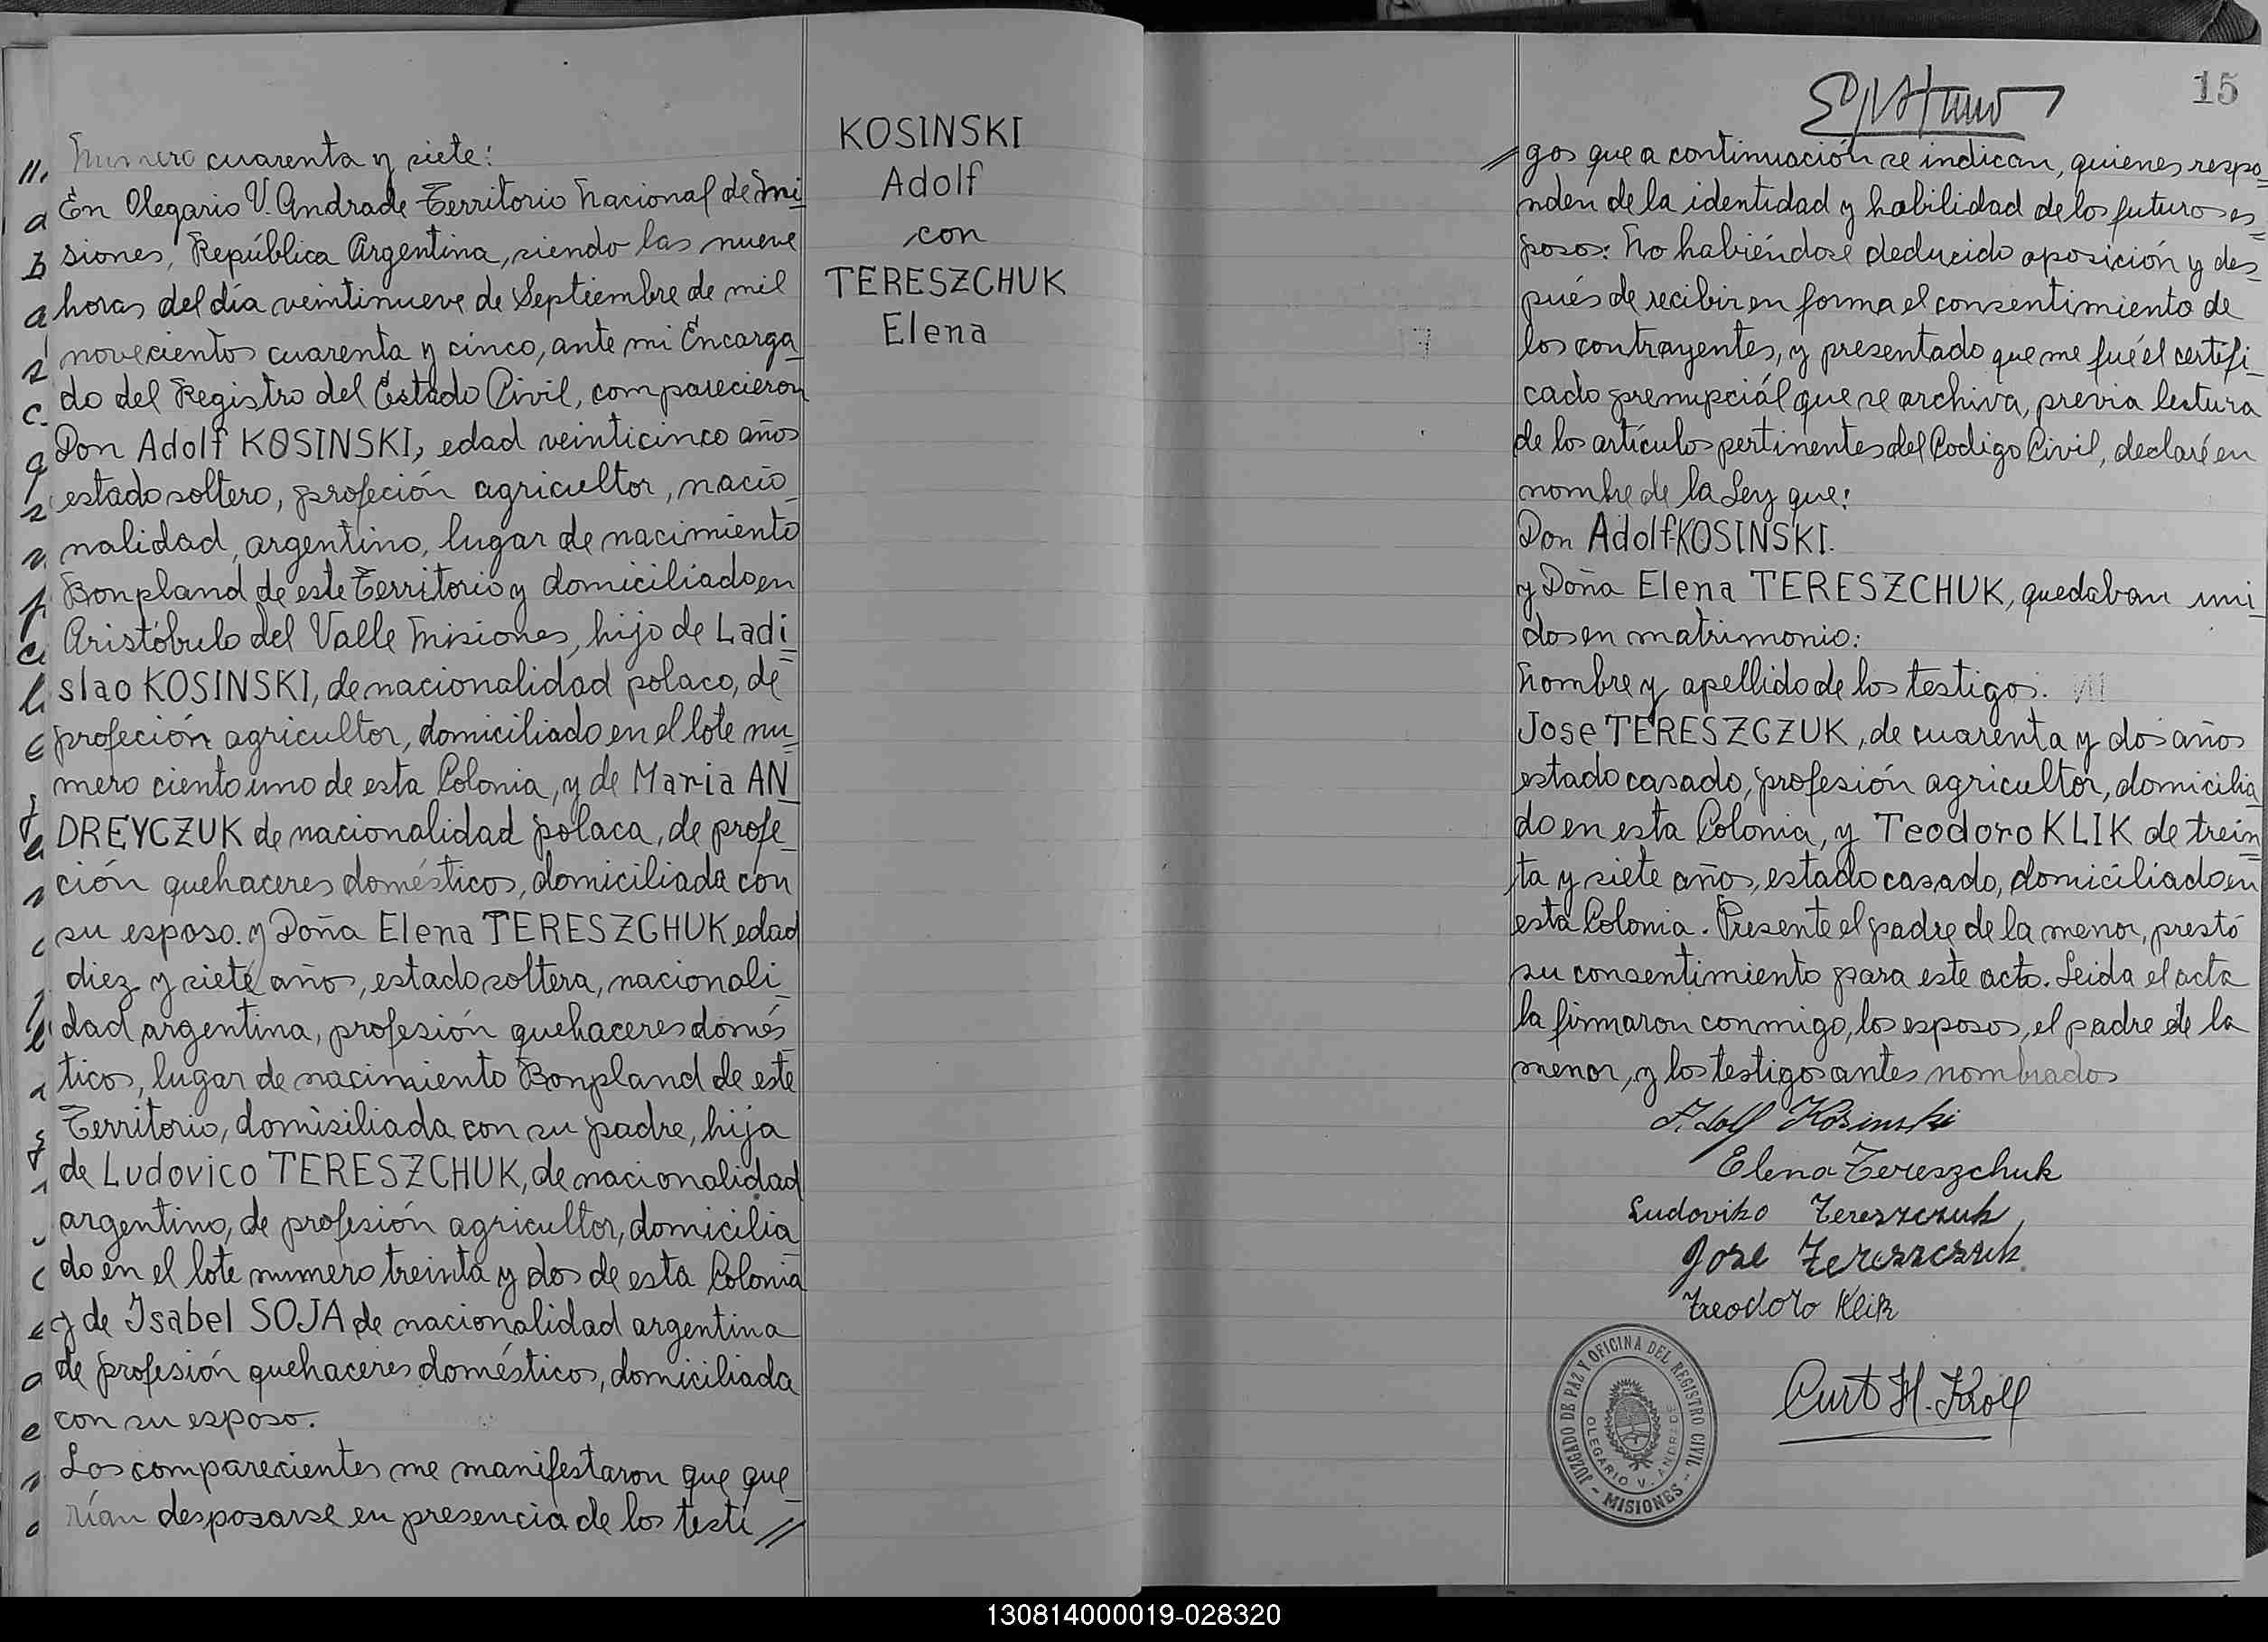 Numero cuarenta y siete:
En Olegario V. Andrade Territorio Nacional de Mi_
siones, República Argentina, siendo las nueve
horas del día veintinueve de Septiembre de mil
novecientos cuarenta y cinco, ante mi Encarga_
do del Registro del Estado Civil, comparecieron
Don Adolf KOSINSKI, edad veinticinco años
estado soltero, profeción agricultor, nacio_
nalidad, argentino, lugar de nacimiento
Bonpland de este Territorio y domiciliado en
Aristóbulo del Valle Misiones, hijo de Ladi=
slao KOSINSKI, de nacionalidad polaco, de
profeción agricultor, domiciliado en el lote nu=
mero ciento uno de esta Colonia, y de Maria AN_
DREYCZUK de nacionalidad polaca, de profe_
ción quehaceres domésticos, domiciliada con
su esposo. y Doña Elena TERESZCHUK edad
diez y siete años, estado soltera, nacionali_
dad argentina, profesión quehaceres domés_
ticos, lugar de nacimiento Bonpland de este
Territorio, domisiliada con su padre, hija
de Ludovico TERESZCHUK, de nacionalidad
argentino, de profesión agricultor, domicilia_
do en el lote numero treinta y dos de esta Colonia
y de Isabel SOJA de nacionalidad argentina
de profesión quehaceres domésticos, domiciliada
con su esposo.
Los comparecientes me manifestaron que que_
rían desposarse en presencia de los testi //
KOSINSKI
Adolf
con
TERESZCHUK
Elena
15
// gos que a continuación se indican, quienes respo=
nden de la identidad y habilidad de los futuros es=
posos: No habiéndose deducido oposición y des_
pués de recibir en forma el consentimiento de
los contrayentes, y presentado que me fué el certifi_
cado prenupciál que se archiva, previa lectura
de los artículos pertinentes del Codigo Civil, declaré en
nombre de la Ley que:
Don Adolf KOSINSKI.
y Doña Elena TERESZCHUK, quedaban uni_
dos en matrimonio:
Nombre y apellido de los testigos.
Jose TERESZCZUK, de cuarenta y dos años
estado casado, profesión agricultor, domicilia_
do en esta Colonia, y Teodoro KLIK de trein=
ta y siete años, estado casado, domiciliado en
esta Colonia. Presente el padre de la menor, prestó
su consentimiento para este acto. Leida el acta
la firmaron conmigo, los esposos, el padre de la
menor, y los testigos antes nombrados
Adolf Kosinski
Elena Tereszchuk
Ludoviko Tereszczuk
Jose Tereszczuk
Teodoro Klik
JUZGADO DE PAZ Y OFICINA DEL REGISTRO CIVIL
OLEGARIO V. ANDRADE
- MISIONES -
Curt H. Kroll
130814000019-028320